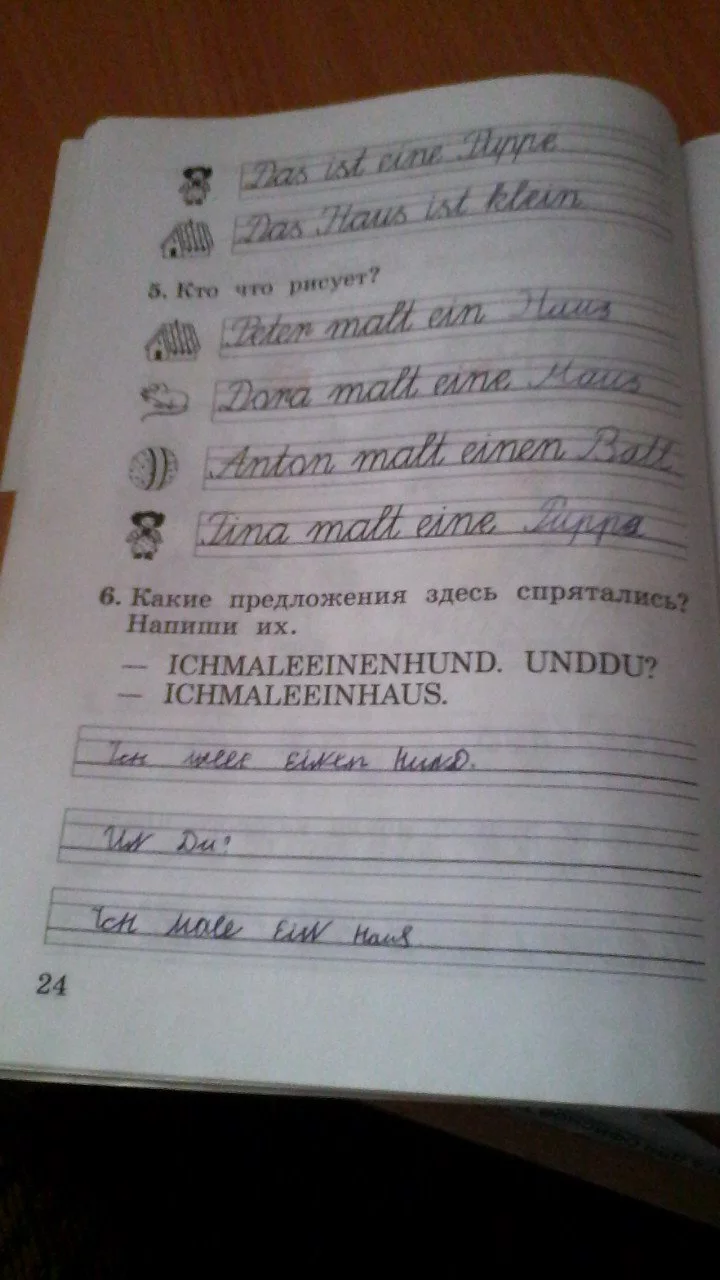 Das ist eine Puppe
Das Haus ist klein
5. Кто что рисует?
Peter malt ein Haus
Dora malt eine Maus
Anton malt einen Ball
Tina malt eine Puppe
6. Какие предложения здесь спрятались?
Напиши их.
— ICHMALEEINENHUND. UNDDU?
— ICHMALEEINHAUS.
Ich einen Hund.
Un Du?
Ich male Ein Haus
24